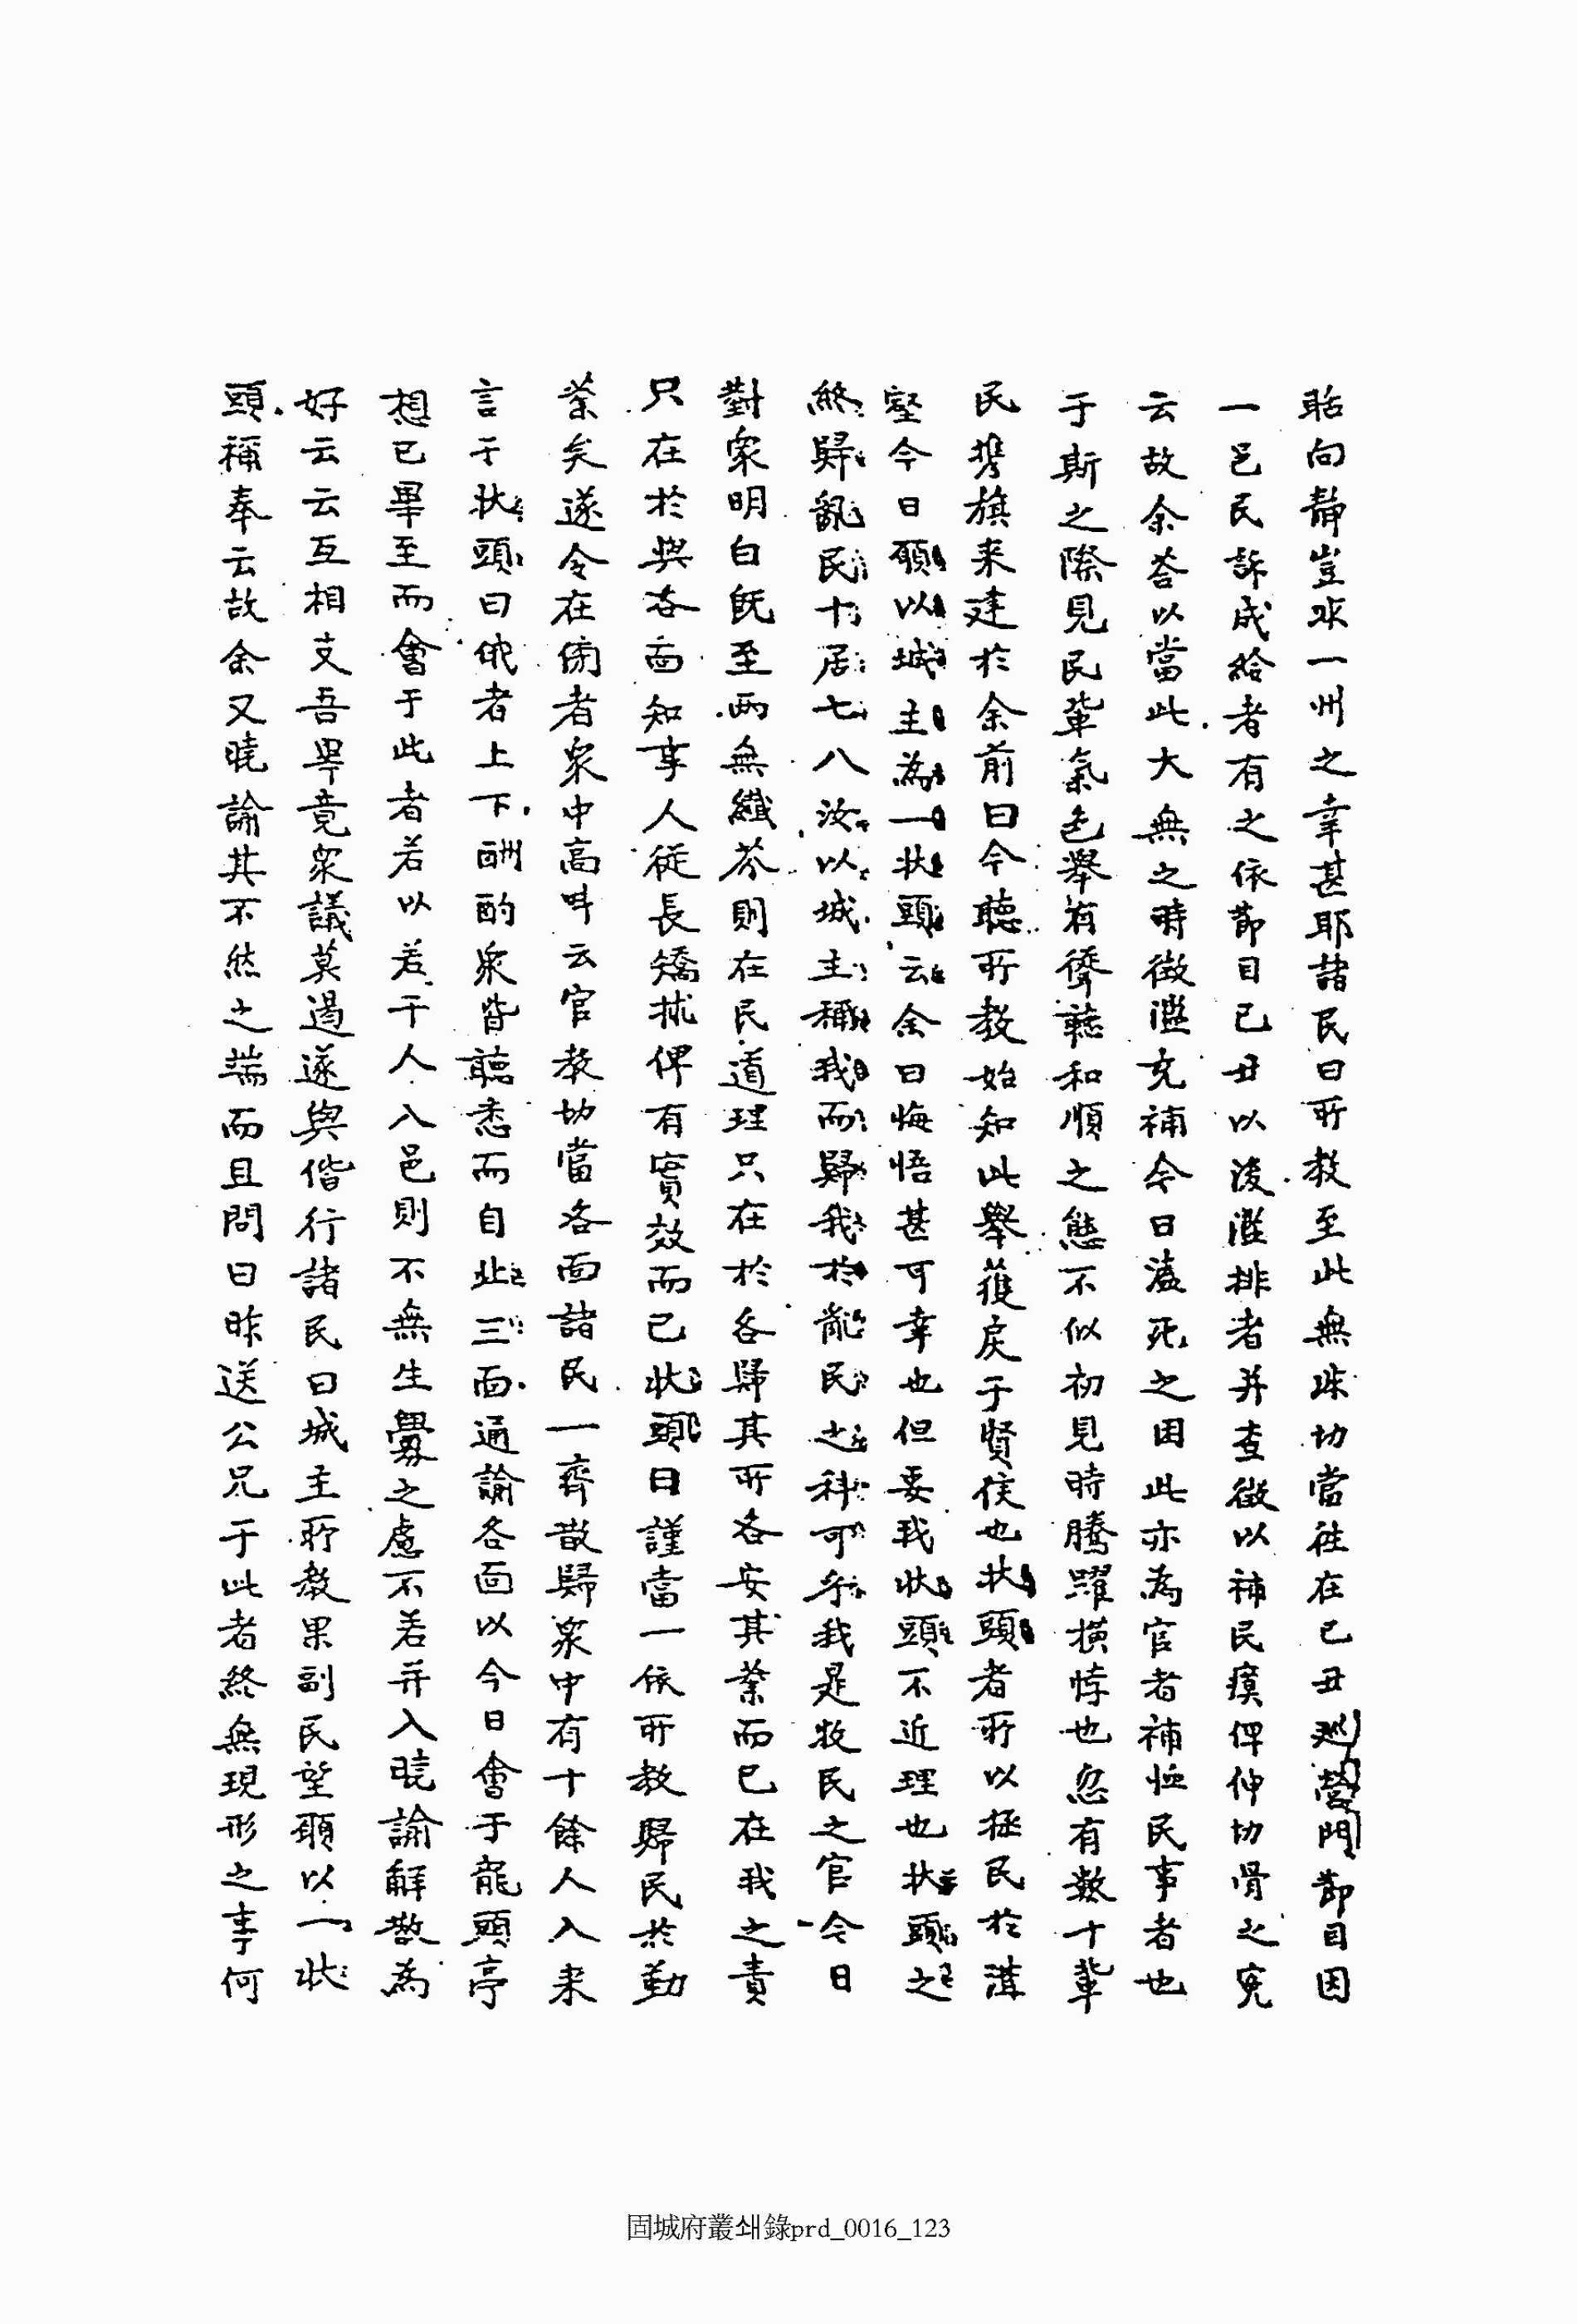 貼向靜豈不一州之幸甚耶諸民曰所教至此無非切當往在己丑巡營門節目因
一邑民訴成給者有之依節目己丑以後濫排者并查徵以補民瘼俾伸切骨之寃
云故余答以當此大無之時徵濫充補今日溘死之困此亦爲官者補恤民事者也
于斯之際見民輩氣色擧有聳聽和順之態不似初見時騰躍橫悖也忽有數十輩
民携旗来建於余前曰今聽所教始知此擧獲戾于賢侯也狀頭者所以拯民於溝
壑今日願以城主為一狀頭云余曰悔悟甚可幸也但妄我狀頭不近理也狀頭之
終歸亂民十居七八汝以城主稱我而歸我於亂民之科可乎我是牧民之官今日
對衆明白旣至兩無纖芥則在民道理只在於各歸其所各安其業而已在我之責
只在於與各面知事人從長矯捄俾有實效而已狀頭曰謹當一依所教歸民於勤
業矣遂令在傍者衆中高呌云官教切當各面諸民一齊散歸衆中有十餘人入来
言于狀頭曰俄者上下酬酌衆皆聽悉而自北三面通諭各面以今日會于龍頭亭
想已畢至而會于此者若以若干人入邑則不無生釁之慮不若并入曉諭解散為
好云云互相支吾畢竟衆議莫遏遂與偕行諸民曰城主所教果副民望願以一狀
頭稱奉云故余又曉諭其不然之端而且問曰昨送公兄于此者終無現形之事何